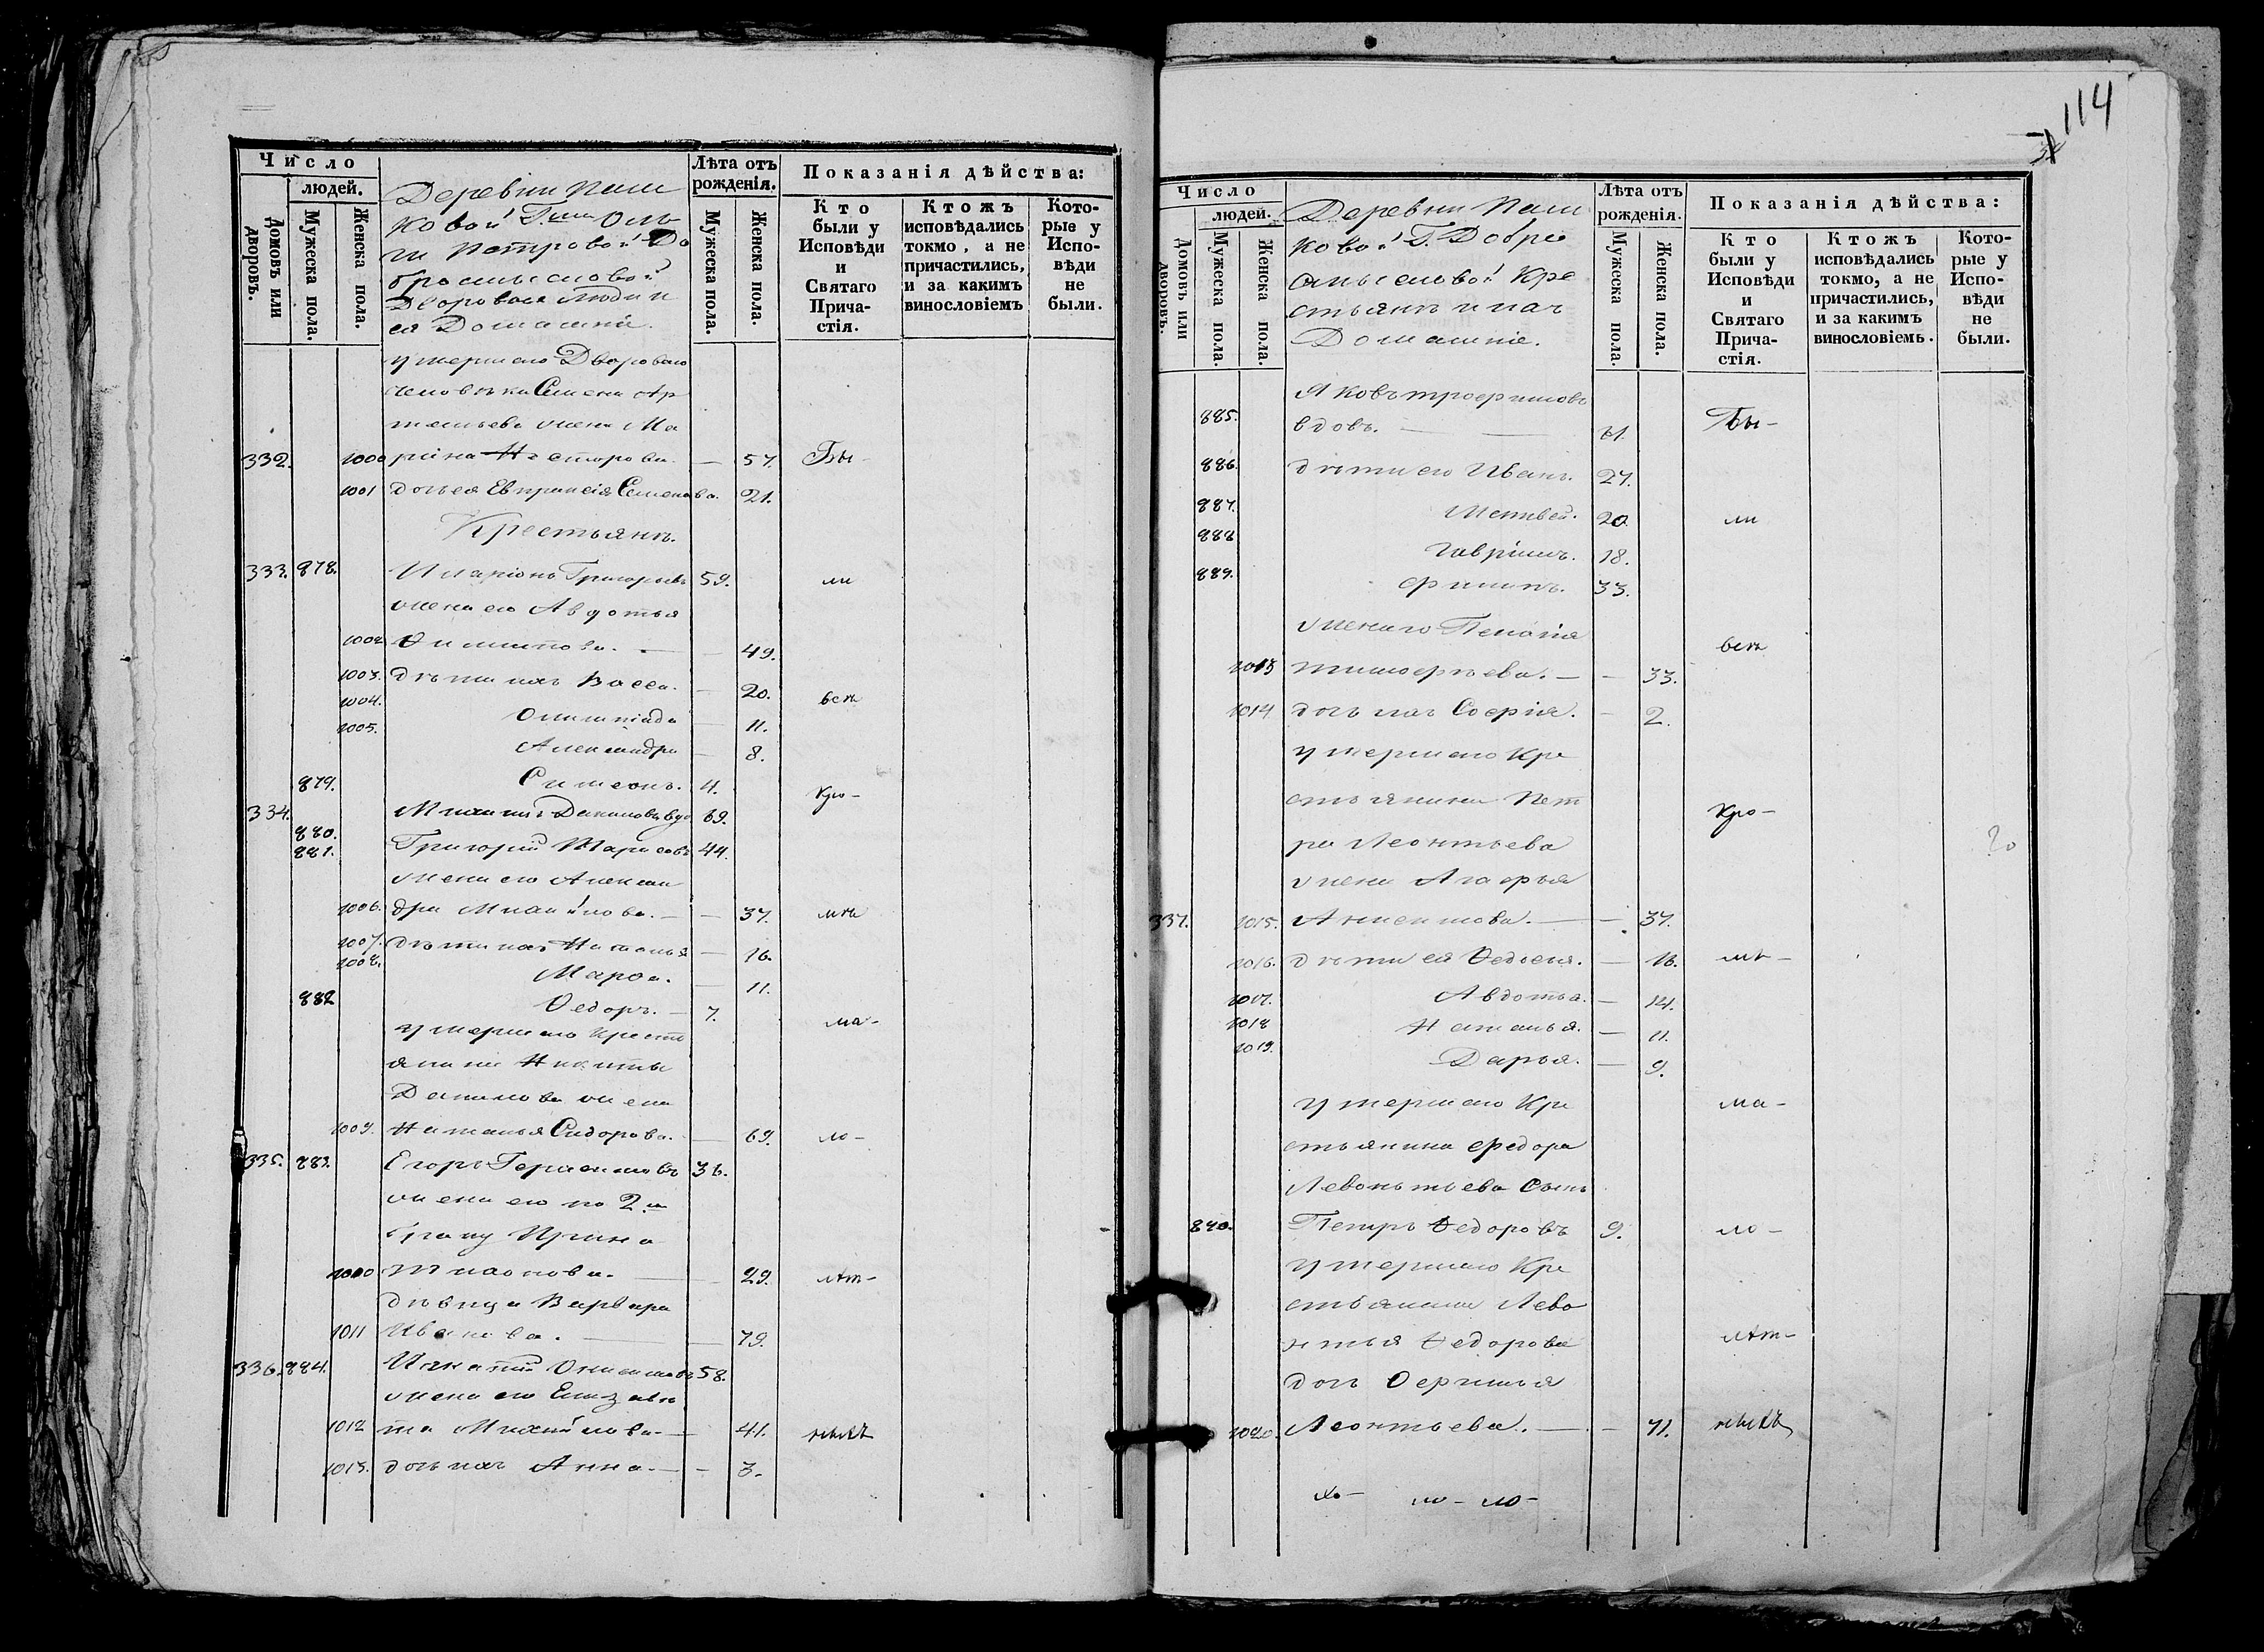 Число
людей.
Домовъ или дворовъ.
Мужеска пола.
Женска пола.
Деревни Паш
ковой Г.жи Оль
ги Петровой До
бросмысловой
Дворовые люди и
ея Домашніе.
Лѣта отъ рожденія.
Мужеска пола.
Женска пола.
Показанія дѣйства:
Кто были у Исповѣди и Святаго Причастія.
Ктожъ исповѣдались токмо, а не причастились, и за какимъ винословіемъ
Которые у Исповѣди не были.
умершаго Двороваго
человѣка Семена Ар
темьева жена Ма
332. 1000 рина Несторова. — 57. Бы-
1001 дочь ея Евпраксія Семенова. 21.
Крестьянъ.
333. 878. Иларіонъ Григорьевъ 59. ли
жена его Авдотья
1002 — 49.
1003. дѣти ихъ Васса. — 20. всѣ
1004. Олимпіада — 11.
1005. Александра — 8.
879. Симеонъ. 4.
Кро-
334. 880. Михаилъ Даниловъ вдо 69.
881. Григорій 44.
жена его Алексан
1006. дра Михайлова. — 37. мѣ
1007. дѣти ихъ Наталья — 16.
1008. Марѳа. — 11.
882 Ѳедоръ. — 7.
ма-
умершаго крестъ
янина Никиты
Данилова жена
1009. Наталья Сидорова. — 69. ло-
335. 883. Егоръ Герасимовъ 36.
жена его по 2м
браку Ирина
1010 — 29. лѣт-
дѣвица Варвара
1011 Иванова. — 79.
336. 884. Игнатій Онисимовъ 58.
жена его Елизаве
1012 та Михайлова — 41. нихъ
1013. дочь ихъ Анна. — 3.
114
Число
людей.
Домовъ или дворовъ.
Мужеска пола.
Женска пола.
Деревни Паш
ковой Г. Добро
смысловой Кре
стьянъ и ихъ
Домашніе.
Лѣта отъ рожденія.
Мужеска пола.
Женска пола.
Показанія дѣйства:
Кто были у Исповѣди и Святаго Причастія.
Ктожъ исповѣдались токмо, а не причастились, и за какимъ винословіемъ.
Которые у Исповѣди не были.
Яковъ Трофимовъ
885. вдовъ. — Бы-
886. дѣти его Иванъ. 27.
887. Матвей. 20. ли
888 Гавріилъ. 18.
889. Филипъ. 33.
жена его Пелагія
всѣ
1013 Тимофѣева. — 33.
1014 дочь ихъ Софія. — 2.
умершаго Кре
стьянина Пет
Кро-
ра Леонтьева
жена Агафья
337. 1015. — 37.
1016. дѣти ея Ѳедосья. — 16. мѣ-
1017. Авдотья. — 14.
1018 Наталья. — 11.
1019. Дарья. — 9.
умершаго Кре
ма-
стьянина Федора
Левонтьева сынъ
840. Петръ Ѳедоровъ 9. ло-
умершаго Кре
стьянина Лево
нтья Ѳедорова
лѣт-
дочь
1020. Леонтьева. — 71. нихъ